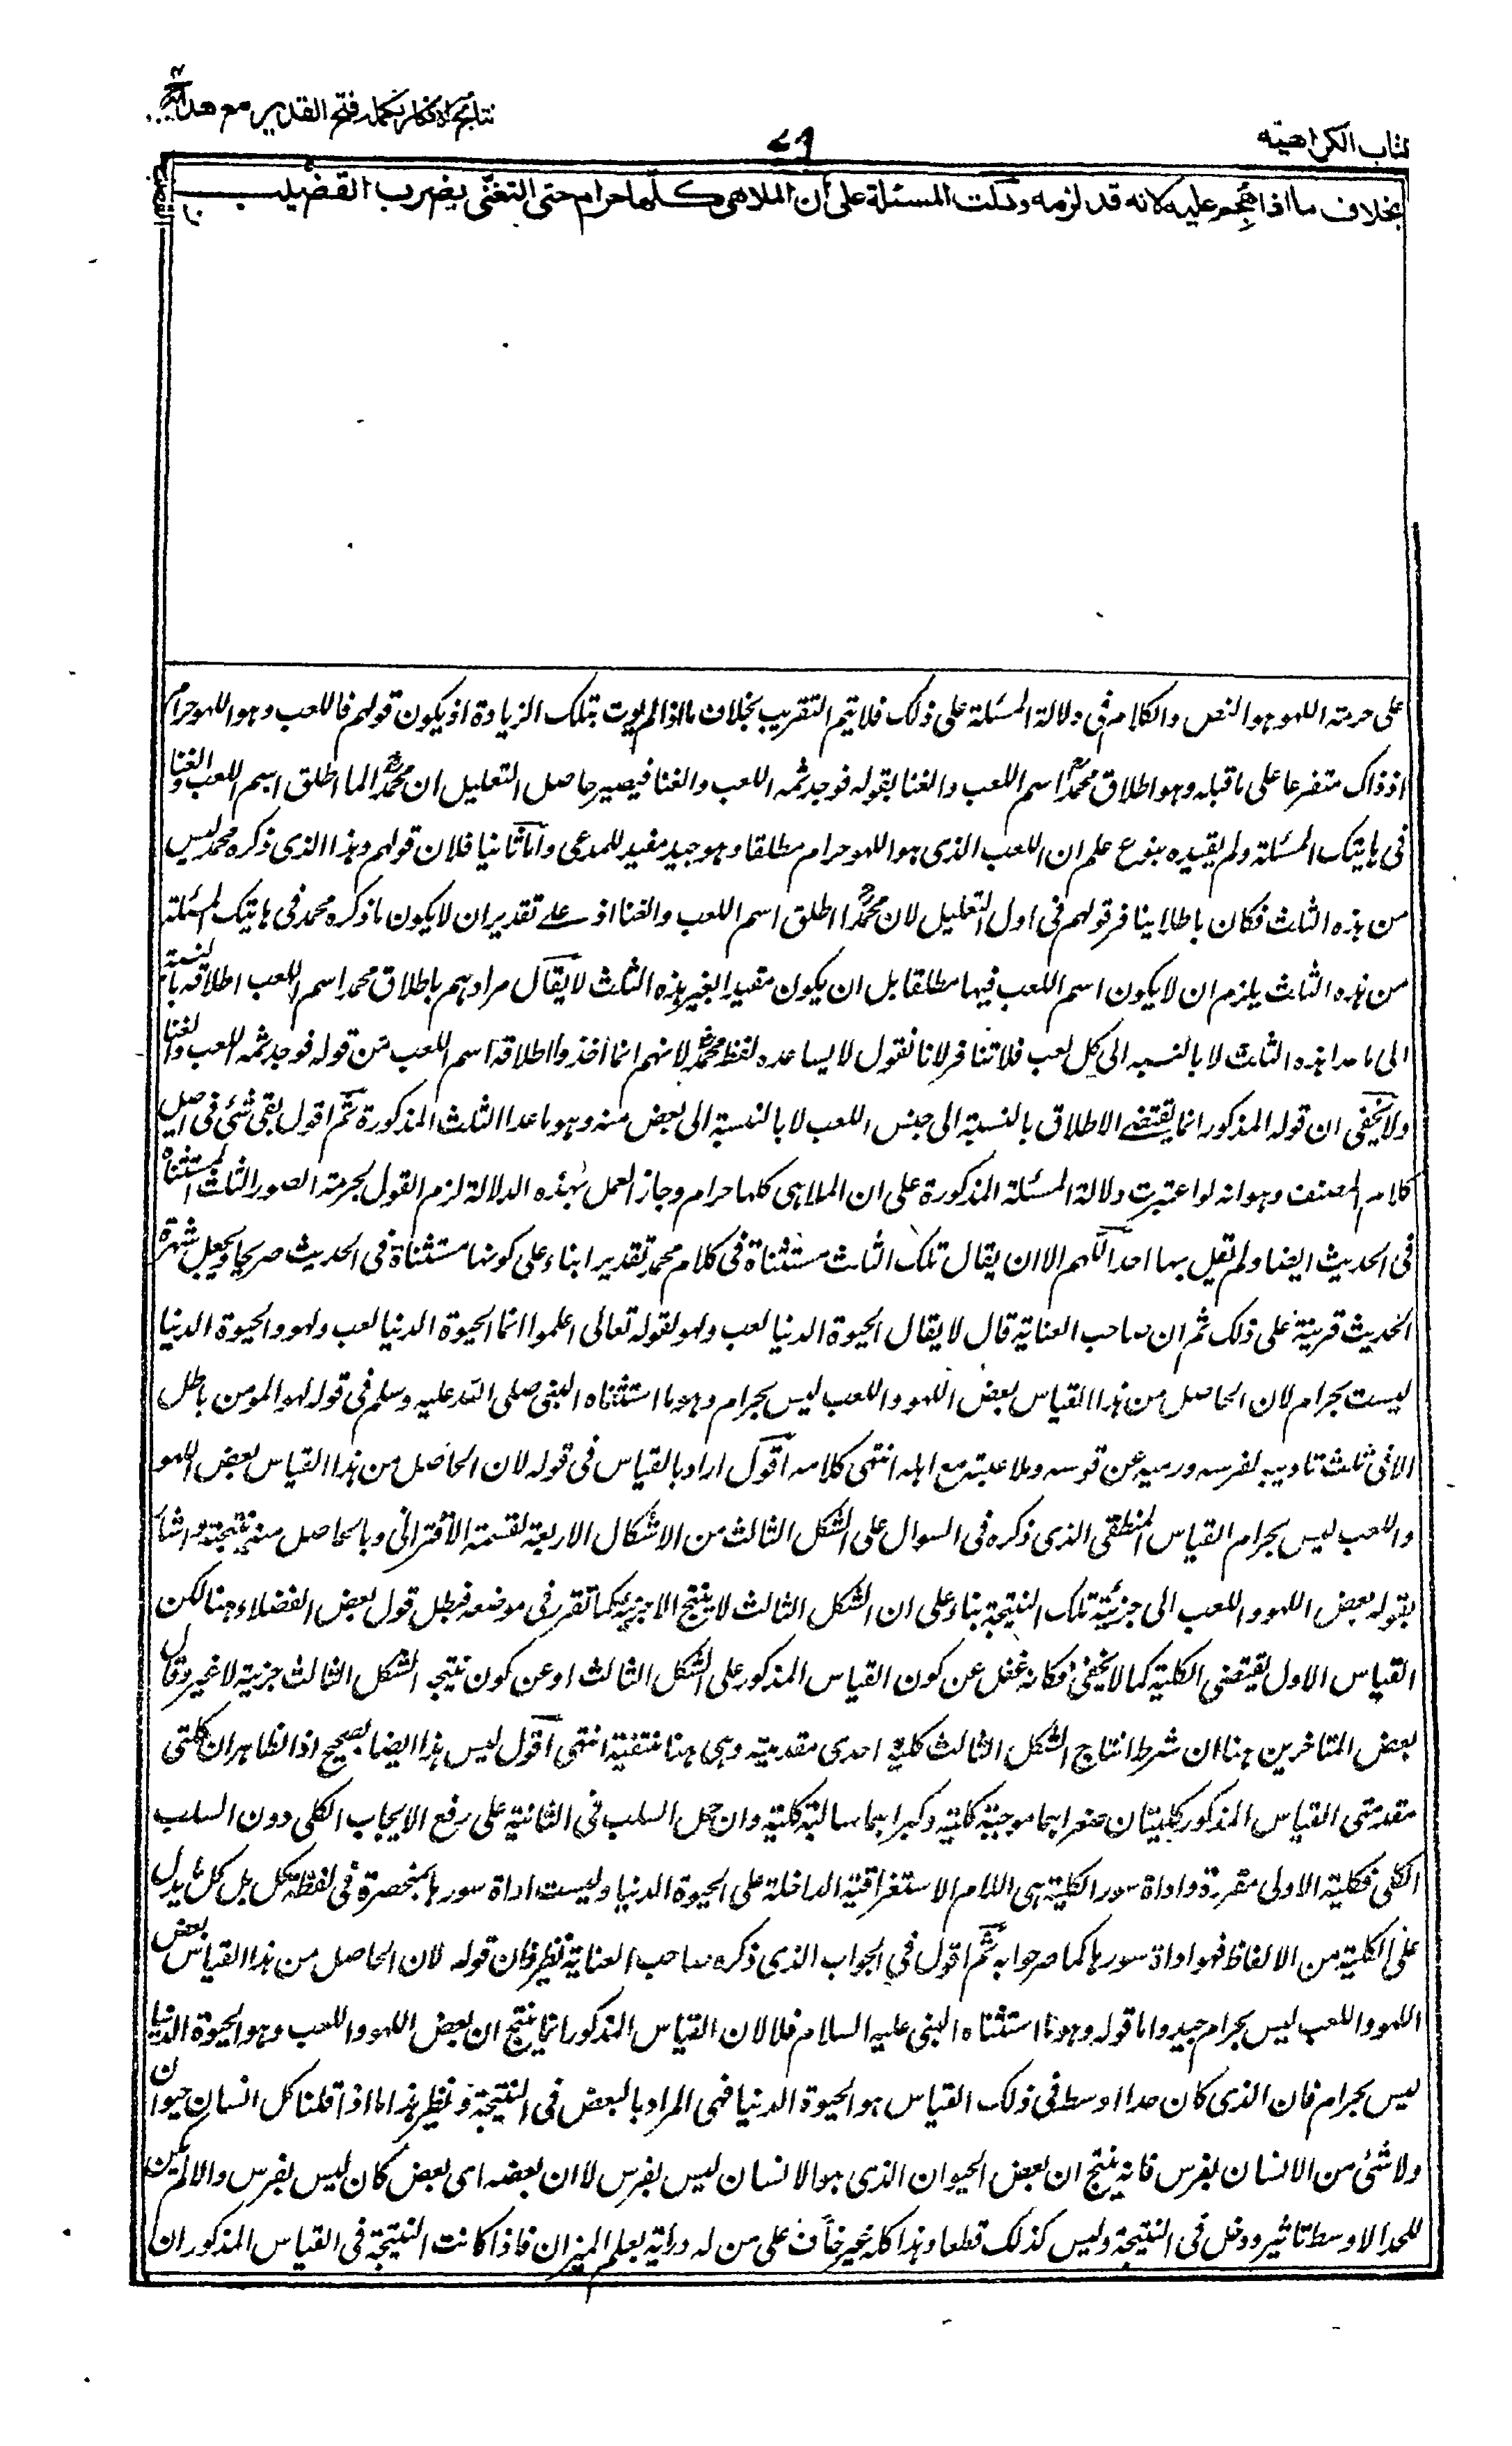 كتاب الكراهية
٧٩
نتائج الافكار تكمله فتح القدير مع هدايه
بخلاف ما اذا هجم عليه لانه قد لزمه ودلت المسئلة على أن الملاهى كلها حرام حتى التغنى بضرب القضيب
على حرمته اللهو هو النص والكلام فى دلالة المسئلة على ذلك فلا يتم التقريب بخلاف ما اذا لم يوت بتلك الزيادة اذ يكون قولهم فاللعب وهو اللهو حرام
اذ ذاك متفرعا على ما قبله وهو اطلاق محمد اسم اللعب والغنا بقوله فوجد ثمه اللعب والغنا فيصير حاصل التعليل ان محمدا لما اطلق اسم اللعب والغنا
فى هاتيك المسئلة ولم يقيده بنوع علم ان اللعب الذى هو اللهو حرام مطلقا وهو جيد مفيد للمدعى واما ثانيا فلان قولهم وهذا الذى ذكره محمد ليس
من هذه الثلث فكان باطلا ينافر قولهم فى اول التعليل لان محمدا اطلق اسم اللعب والغنا اذ على تقدير ان لا يكون ما ذكره محمد فى هاتيك المسئلة
من هذه الثلث يلزم ان لا يكون اسم اللعب فيها مطلقا بل ان يكون مقيدا بغير هذه الثلث لا يقال مرادهم باطلاق محمد اسم اللعب اطلاقه بالنسبة
الى ما عدا هذه الثلث لا بالنسبه الى كل لعب فلا تنافر لانا نقول لا يساعده لفظ محمد لانهم انما اخذوا اطلاقه اسم اللعب من قوله فوجد ثمه اللعب والغنا
ولا يخفى ان قوله المذكور انما يقتضے الاطلاق بالنسبة الى جنس اللعب لا بالنسبة الى بعض منه وهو ما عدا الثلث المذكورة ثم اقول بقى شئ فى اصل
كلام المصنف وهو انه لو اعتبرت دلالة المسئلة المذكورة على ان الملاهى كلها حرام وجاز العمل بهذه الدلالة لزم القول بحرمته الصور الثلث المستثناة
فى الحديث ايضا ولم يقل بها احد اللهم الا ان يقال تلك الثلث مستثناة فى كلام محمد تقديرا بناء على كونها مستثناة فى الحديث صريحا ويجعل شهرة
الحديث قرينة على ذلك ثم ان صاحب العناية قال لا يقال الحيوة الدنيا لعب ولهو لقوله تعالى اعلموا انما الحيوة الدنيا لعب ولهو والحيوة الدنيا
ليست بحرام لان الحاصل من هذا القياس بعض اللهو واللعب ليس بحرام وهو ما استثناه النبى صلى الله عليه وسلم فى قوله لهو المومن باطل
الا فى ثلث تاديبه لفرسه ورميه عن قوسه وملاعبته مع اهله انتهى كلامه اقول اراد بالقياس فى قوله لان الحاصل من هذا القياس بعض اللهو
واللعب ليس بحرام القياس المنطقى الذى ذكره فى السوال على الشكل الثالث من الاشكال الاربعة لقسمة الاقترانى وبالحاصل منه نتيجته واشار
بقوله بعض اللهو واللعب الى جزئية تلك النتيجة بناء على ان الشكل الثالث لا ينتج الا جزئية كما تقرر فى موضعه فبطل قول بعض الفضلاء هنا لكن
القياس الاول يقتضى الكلية كما لا يخفى فكانه غفل عن كون القياس المذكور على الشكل الثالث او عن كون نتيجه الشكل الثالث جزية لا غير وقال
بعض المتاخرين هنا ان شرط انتاج الشكل الثالث كلية احدى مقدميته وهى هنا منتفية انتهى اقول ليس هذا ايضا بصحيح اذ الظاهر ان كلتى
مقدمتى القياس المذكور كليتان صغراهما موجبة كلية وكبراهما سالبة كلية وان حمل السلب فى الثانية على رفع الايجاب الكلى دون السلب
الكلى فكلية الاولى مقررة واداة سور الكلية هى اللام الاستغراقية الداخلة على الحيوة الدنيا وليست اداة سورها بمنحصرة فى لفظة كل بل كل ما يدل
على الكلية من الالفاظ فهو اداة سورها كما صرحوا به ثم اقول فى الجواب الذى ذكره صاحب العناية نظر فان قوله لان الحاصل من هذا القياس بعض
اللهو واللعب ليس بحرام جيد واما قوله وهو ما استثناه النبى عليه السلام فلا لان القياس المذكور انما ينتج ان بعض اللهو واللعب وهو الحيوة الدنيا
ليس بحرام فان الذى كان حدا اوسط فى ذلك القياس هو الحيوة الدنيا فهى المراد بالبعض فى النتيجة ونظير هذا ما اذا قلنا كل انسان حيوان
ولا شئ من الانسان بفرس فانه ينتج ان بعض الحيوان الذى هو الانسان ليس بفرس لا ان بعضه اى بعض كان ليس بفرس والا لم يكن
للحد الاوسط تاثير ودخل فى النتيجة وليس كذلك قطعا وهذا كله غير خاف على من له دراية بعلم الميزان فاذا كانت النتيجة فى القياس المذكور ان